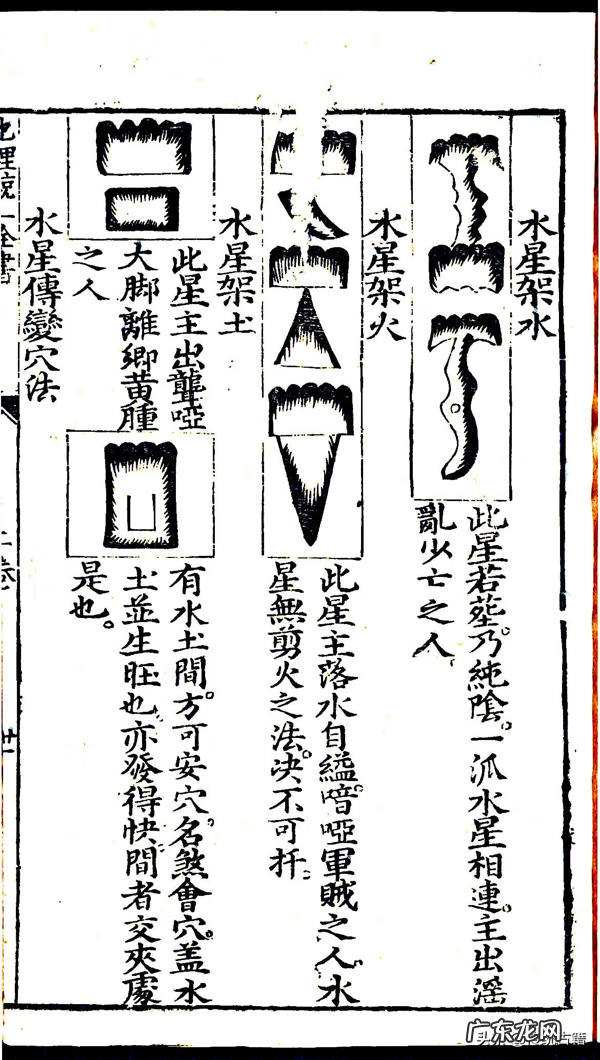 水星架水
此星若塟。乃純陰。一派水星相連。主出滛
亂少亡之人
水星架火
此星主落水自縊。喑啞軍賊之人。水
星無剪火之法。决不可扦
水星架土
此星主出聾啞
大脚離鄉黄腫
之人
有水土間。方可安穴。名煞會穴。盖水
土並生旺也。亦發得快間者交夾處
是也。
水星傳變穴法
地理統一全書
卄一
广东龙网